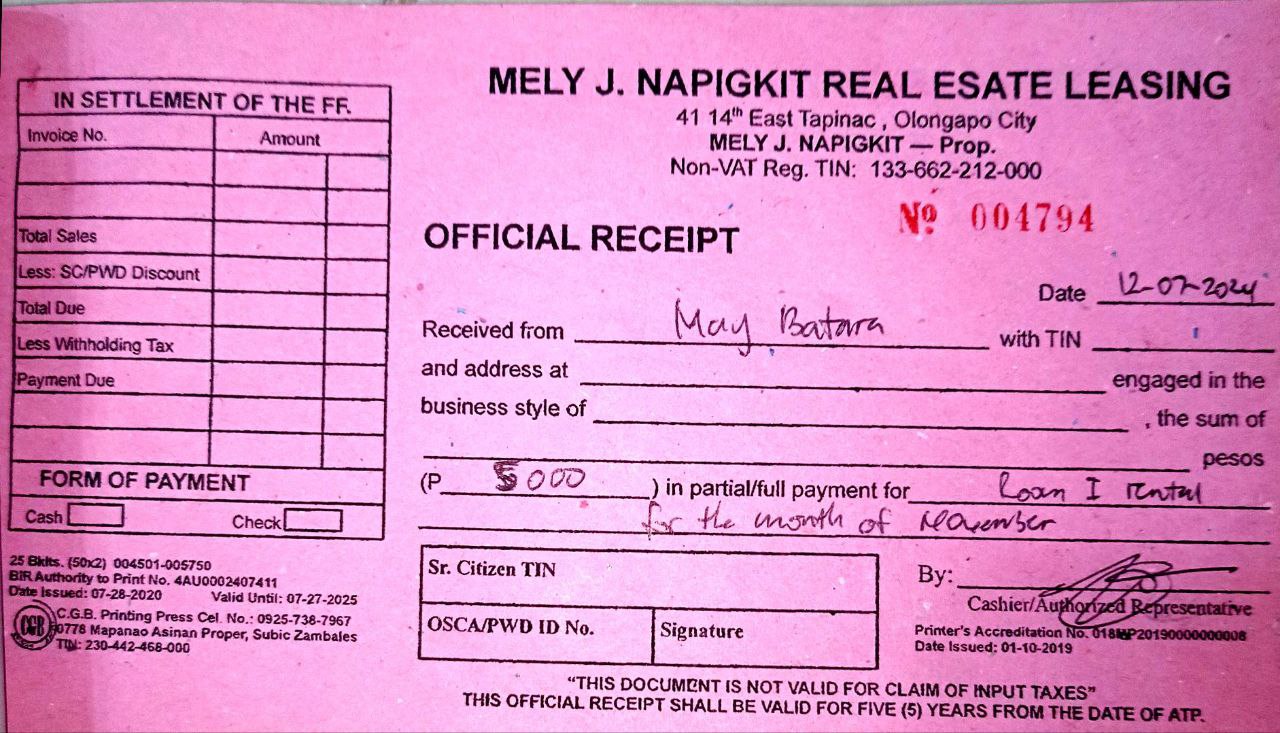 IN SETTLEMENT OF THE FF.
Invoice No. Amount
Total Sales
Less: SC/PWD Discount
Total Due
Less Withholding Tax
Payment Due
FORM OF PAYMENT
Cash Check
25 Bklts. (50x2) 004501-005750
BIR Authority to Print No. 4AU0002407411
Date Issued: 07-28-2020 Valid Until: 07-27-2025
CGB
C.G.B. Printing Press Cel. No.: 0925-738-7967
0778 Mapanao Asinan Proper, Subic Zambales
TIN: 230-442-468-000
MELY J. NAPIGKIT REAL ESATE LEASING
41 14th East Tapinac , Olongapo City
MELY J. NAPIGKIT — Prop.
Non-VAT Reg. TIN: 133-662-212-000
№ 004794
OFFICIAL RECEIPT
Date 12-07-2024
Received from May Batara with TIN
and address at engaged in the
business style of , the sum of
pesos
(P 5000 ) in partial/full payment for Room I rental
for the month of November
Sr. Citizen TIN
OSCA/PWD ID No. Signature
By:
Cashier/Authorized Representative
Printer's Accreditation No. 018MP20190000000008
Date Issued: 01-10-2019
"THIS DOCUMENT IS NOT VALID FOR CLAIM OF INPUT TAXES"
THIS OFFICIAL RECEIPT SHALL BE VALID FOR FIVE (5) YEARS FROM THE DATE OF ATP.